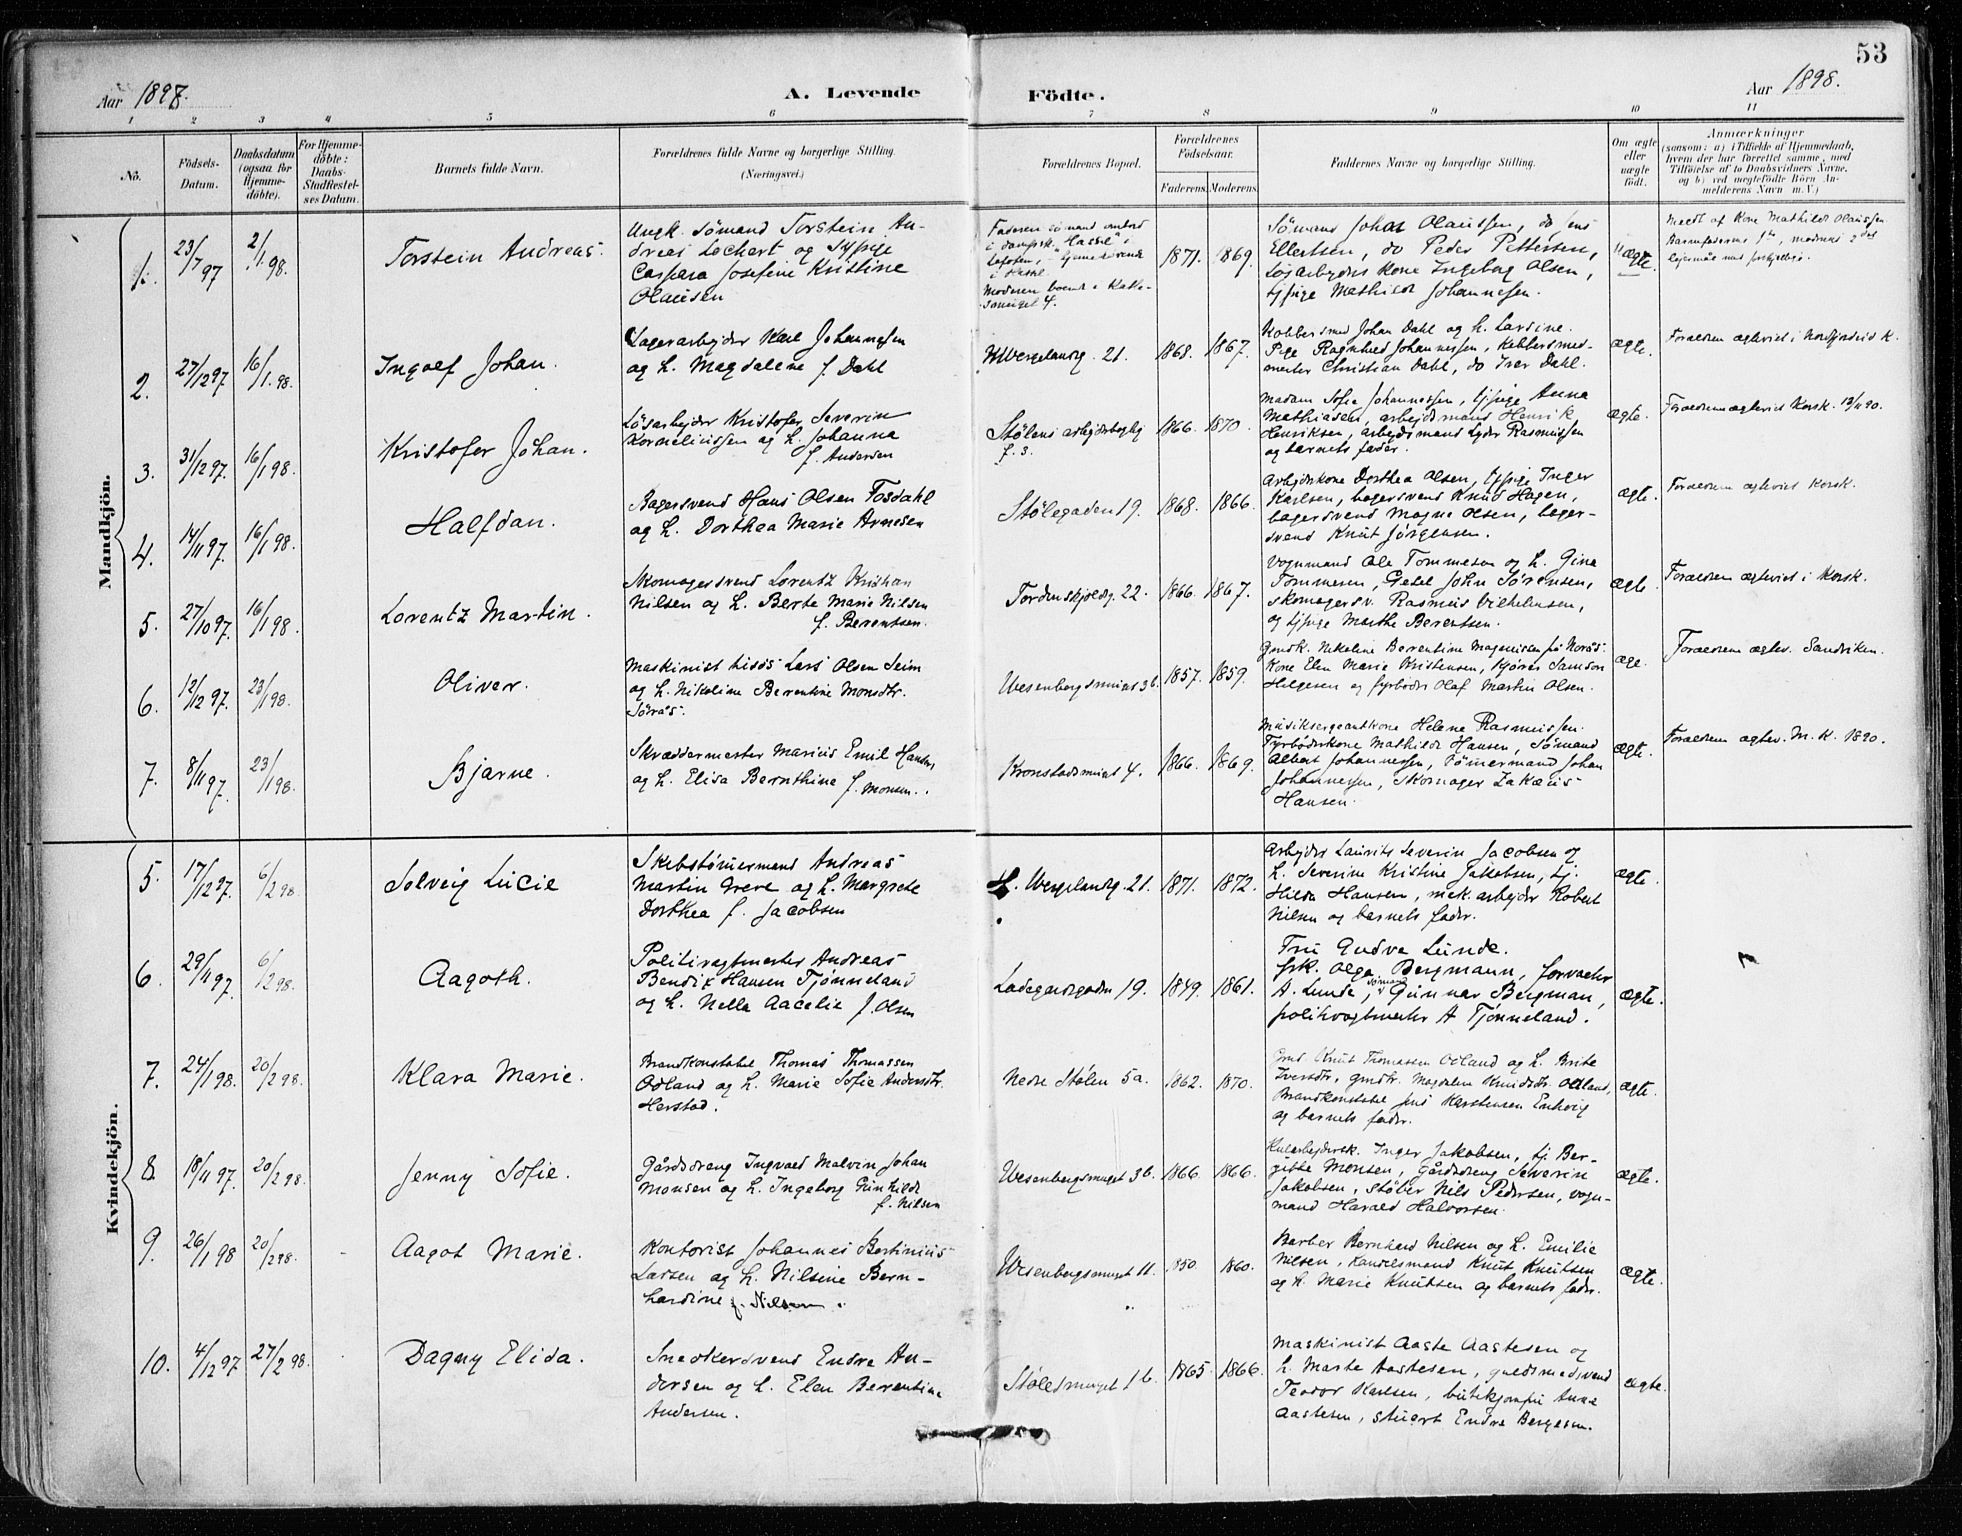 53
Aar 1898.
A. Levende
Födte.
Aar 1898.
1 2 3 4 5 6 7 8 9 10 11
No.
Födsels-
Datum.
Daabsdatum
(ogsaa for
Hjemme-
döbte).
For Hjemme-
döbte:
Daabs-
Stadfæstel-
ses Datum.
Barnets fulde Navn.
Forældrenes fulde Navne og borgerlige Stilling.
(Næringsvei.)
Forældrenes Bopæl.
Forældrenes
Födselsaar.
Faderens.
Moderens.
Faddernes Navne og borgerlige Stilling.
Om ægte
eller
uægte
födt.
Anmærkninger
(saasom: a) i Tilfælde af Hjemmedaab,
hvem der har forrettet samme, med
Tilföielse af to Daabsvidners Navne,
og b) ved uægtefödte Börn An-
melderens Navn m. V.)
Mandkjön.
1.
23/7 97
2/1 98.
Torstein Andreas.
Ungk. Sömand Torstein An-
dreas Lochert og Tj.pige
Caspara Josefine Kristine
Olausen
Faderen sömand ombord
i dampsk. "Hassel" i
Lofoten, hjemmehörende
i Hassel
Moderen boende i Katte-
smuget 4.
1871.
1869.
Sömand Johan Olaussen, do Jens
Ellertsen, do Peder Pettersen,
Løsarbeiders kone Ingeborg Olsen,
tj.pige Mathilde Johannesen.
uægte.
Meldt af Kone Mathilde Olaussen
Barnefaderens 1ste, moderens 2det
leiermål
2.
27/12 97
16/1 98.
Ingolf Johan.
Lagerarbejder Karl Johannesen
og H. Magdalene f. Dahl
Wergelandsg. 21.
1868.
1867.
Kobbersmed Johan Dahl og H. Larsine.
Pige Ragnhild Johannessen, Kobbersmed-
mester Christian Dahl, do Iver Dahl.
ægte.
Forældrene ægteviet i Nordfjordeid K.
3.
31/12 97.
16/1 98.
Kristofer Johan.
Løsarbejder Kristofer Severin
Korneliussen og H. Johanna
f. Andersen
Stølens arbejderbolig
f. 3.
1866.
1870.
Madam Sofie Johannessen, tj.pige Anna
Mathiasen, arbejdsmand Henrik
Henriksen, arbejdsmand Lyder Rasmussen
og barnets fader.
ægte.
Forældrene ægteviet Korsk. 12/11 90.
4.
14/11 97.
16/1 98.
Halfdan.
Bagersvend Hans Olsen Fosdahl
og H. Dorthea Marie Arnesen
Stølegaden 19.
1868.
1866.
Arbejdskone Dorthea Olsen, tj.pige Inger
Karlsen, bagersvend Knud Hagen,
bagersvend Magne Olsen, bager-
svend Knut Jörgensen.
ægte.
Forældrene ægteviet Korsk.
5.
27/10 97.
16/1 98.
Lorentz Martin.
Skomagersvend Lorentz Kristian
Nilsen og H. Berte Marie Nilsen
f. Berentsen.
Tordenskjoldsg. 22.
1866.
1867.
Vognmand Ole Tommesen og H. Gina
Tommesen, Betel John Sørensen,
skomagersv. Rasmus Vilhelmsen,
og tj.pige Marthe Berentsen.
ægte.
Forældrene ægteviet i Korsk.
6.
12/12 97.
23/1 98.
Oliver.
Maskinist Lars Olsen Seim
og H. Nikoline Berentine Monsdtr.
Sörås.
Wesenbergsmuget 3b.
1857.
1859.
Gmdk. Nikoline Berentine Magnussen på Norås
Kone Elen Marie Kristensen, Kjører Samson
Helgesen og fyrböder Olaf Martin Olsen.
æge.
Forældrene ægtev. Sandviken.
7.
8/11 97.
23/1 98.
Bjarne.
Skræddermester Marius Emil Hansen
og H. Elisa Bernthine f. Monsen.
Kronstadsmuget 4.
1866.
1869.
Musiksergeantkone Helene Rasmussen.
Fyrböderkone Mathilde Hansen, Sömand
Albert Johannessen, Tömermand Johan
Johannessen, Skomager Zakæus
Hansen.
ægte.
Forældrene ægtev. M. K. 1890.
Kvindekjön.
5.
17/12 97.
6/2 98
Solveig Lucie
Skibstömmermand Andreas
Martin Greve og H. Margrete
Dorthea f. Jacobsen
H. Wergelandsg. 21.
1871.
1872.
Arbejder Laurits Severin Jacobsen og
H. Severine Kristine Jakobsen, tj.
Hilda Hansen, mek. arbejder Robert
Nilsen og barnets fader.
ægte.
6.
29/11 97.
6/2 98.
Aagoth.
Politivagtmester Andreas
Bendix Hansen Tjønneland
og H. Nella Aacelie f. Olsen
Ladegaardsgaden 19.
1849.
1861.
Fru Gudva Lunde.
Frk. Olga Bergmann, forvalter
A. Lunde, sömand Gunnar Bergman,
politivagtmester A Tjønneland.
ægte.
7.
24/1 98.
20/2 98.
Klara Marie.
Brandkonstabel Thomas Thomassen
Odland og H. Marie Sofie Andersdtr.
Herstad.
Nedre Stølen 5a.
1862.
1870.
Gmd Knut Thomassen Odland og H. Brite
Iversdtr., gmdtr. Magdalene Knudsdtr. Odland,
Brandkonstabel Jens Karstensen Enhvig
og barnets fader.
ægte.
8.
18/11 97.
20/2 98.
Jenny Sofie.
Gårdsdreng Ingvald Malvin Johan
Monsen og H. Ingeborg Gunhilde
f. Nilsen
Wesenbergsmuget 3b.
1866.
1866.
Kularbejdersk. Inger Jakobsen, tj. Ber-
gitte Monsen, Gårdsdreng Severin
Jakobsen, støber Nils Pedersen, vogn-
mand Harald Halvorsen.
ægte.
9.
26/1 98
20/2 98.
Aagot Marie.
Kontorist Johannes Bertinius
Larsen og H. Nilsine Bern-
hardine f. Nilsen.
Wesenbergsmuget 11.
1850.
1860.
Barber Bernhard Nilsen og H. Emilie
Nilsen, Handelsmand Knut Knutsen
og H. Marie Knutsen og barnets fader.
ægte.
10.
4/12 97
27/2 98.
Dagny Elida.
Snedkersvend Endre An-
dersen og H. Elen Berentine
Andersen.
Stølesmuget 1b.
1865
1866.
Maskinist Aaste Aastesen og
H. Marte Aastesen, guldsmedsvend
Teodor Karlsen, butikjomfru Anna
Aastesen, stuert Endre Bergesen.
ægte.